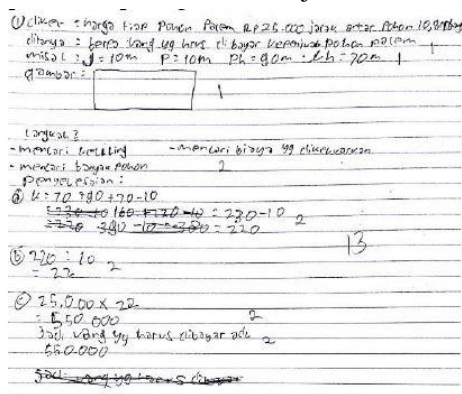 ① diket : harga tiap Pohon Palem Rp 25.000 jarak antar Pohon 10,
ditanya : berpa uang yg harus di bayar kepenjual pohon palem 1
misal : J = 10m P = 10m Ph = 90m = 70m 1
gambar : 1
Langkah 2
- mencari keliling - mencari biaya yg dikeluarkan
- mencari banyak pohon 2
Penyelesaian :
ⓐ k = 70 + 90 + 70 - 10
= 230 - 10 2
= 220
13
ⓑ 220 : 10
= 22 2
ⓒ 25.000 x 22
= 550.000 2
Jadi uang yg harus dibayar ada 2
550.000